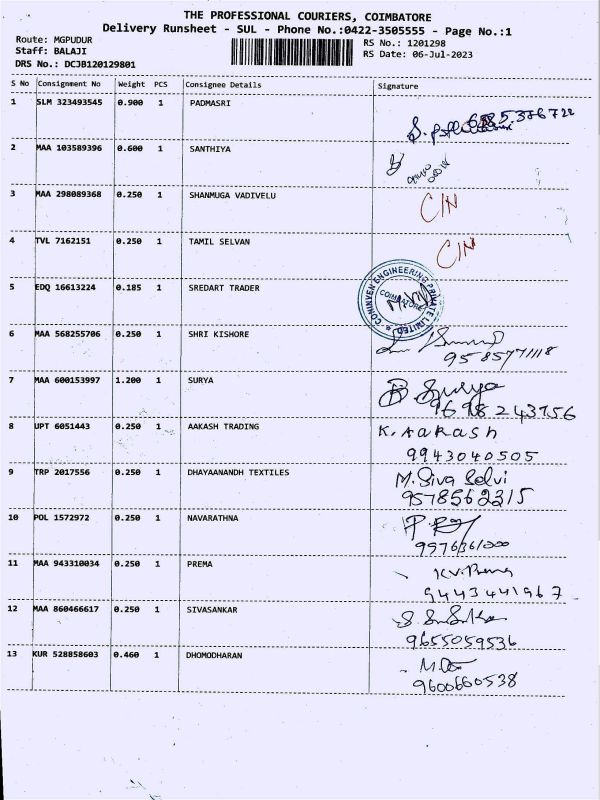 THE PROFESSIONAL COURIERS, COIMBATORE
Delivery Runsheet - SUL - Phone No.:0422-3505555 - Page No.:1
Route: MGPUDUR
Staff: BALAJI
DRS No.: DCJB120129801
RS No.: 1201298
RS Date: 06-Jul-2023
S No Consignment No Weight PCS Consignee Details Signature
1 SLM 323493545 0.900 1 PADMASRI
2 MAA 103589396 0.600 1 SANTHIYA
3 MAA 298089368 0.250 1 SHANMUGA VADIVELU C/N
4 TVL 7162151 0.250 1 TAMIL SELVAN C/N
5 EDQ 16613224 0.185 1 SREDART TRADER
CONINVEN ENGINEERING PRIVATE LIMITED
COIMBATORE
6 MAA 568255706 0.250 1 SHRI KISHORE
9585771118
7 MAA 600153997 1.200 1 SURYA B Surya
9698243756
8 UPT 6051443 0.250 1 AAKASH TRADING K. AaRASh
9943040505
9 TRP 2017556 0.250 1 DHAYAANANDH TEXTILES M. Siva Selvi
9578562315
10 POL 1572972 0.250 1 NAVARATHNA
9976361000
11 MAA 943310034 0.250 1 PREMA K.V. Prema
9443441967
12 MAA 860466617 0.250 1 SIVASANKAR
9655059536
13 KUR 528858603 0.460 1 DHOMODHARAN
9600660538